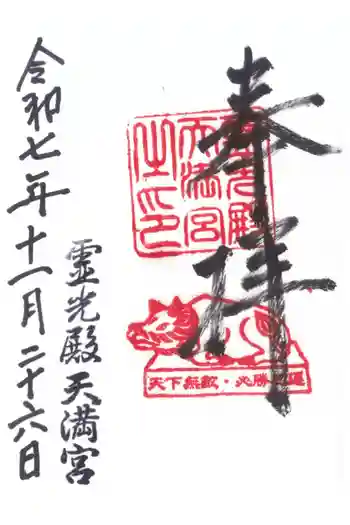 奉拝
霊光殿
天満宮
之印
天下無敵・必勝
霊光殿天満宮
令和七年十一月二十六日